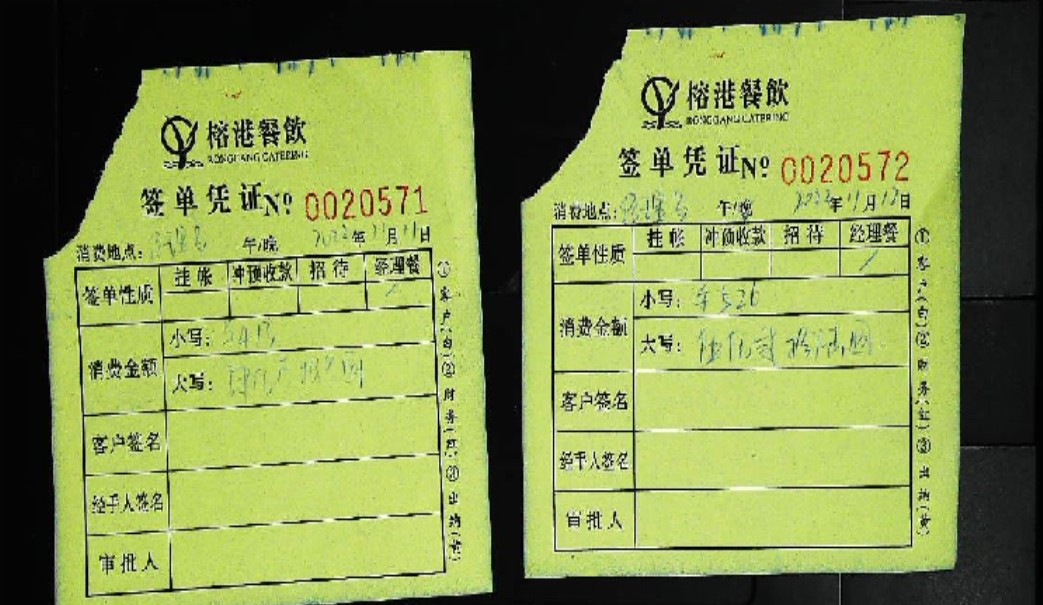 榕港餐飲
RONGGANG CATERING
签单凭证 Nº 0020571
消费地点: 午/晚 2022年11月11日
签单性质 挂帐 冲预收款 招待 经理餐
消费金额 小写:
大写:
客户签名
经手人签名
审批人
①客户(白)②财务(红)③出纳(黄)
榕港餐飲
RONGGANG CATERING
签单凭证 Nº 0020572
消费地点: 午/晚 2022年11月12日
签单性质 挂帐 冲预收款 招待 经理餐
消费金额 小写:
大写:
客户签名
经手人签名
审批人
①客户(白)②财务(红)③出纳(黄)